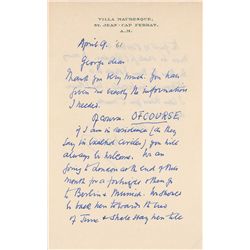 VILLA MAURESQUE,
ST. JEAN-CAP FERRAT,
A.M.
April 9. 61
George dear
Thank you very much. You have
given me exactly the information
I needed.
Of course. OFCOURSE.
if I am in residence (as they
say in exalted circles) you will
always be welcome. We are
going to London at the end of this
month for a fortnight & then go
to Berlin & Munich. We hope
to be back here towards the end
of June & shall stay here till